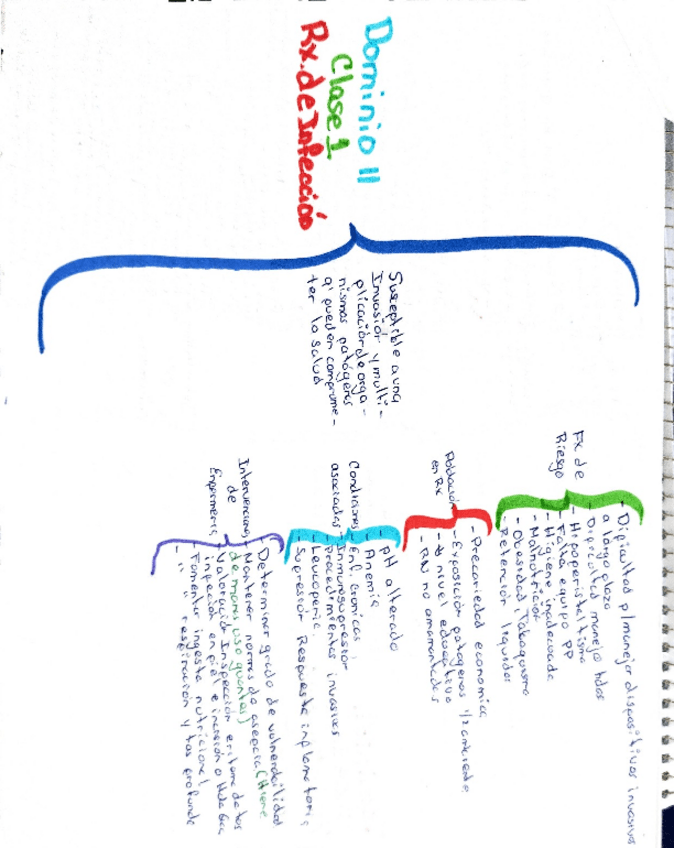 Dominio 11
Clase 1
Rx. de Infección
Susceptible a una
Invasión y multi-
plicación de orga-
nismos patógenos
q' pueden comprome-
ter la salud
Fx de
Riesgo
- Dificultad p/manejar dispositivos invasivos
a largo plazo
- Dificultad manejo hdas
- Hipoperistaltismo
- Falta equipo PP
- Higiene inadecuada
- Malnutrición
- Obesidad, Tabaquismo
- Retención líquidos
Población
en Rx
- Precariedad economica
- Exposición patogenos 1/2 ambiente
- nivel educativo
- RN no amamantados
Condiciones
asociadas
- pH alterado
- Anemia
- Enf. Cronicas,
- Inmunosupresion
- Procedimientos invasivos
- Leucopenia.
- Supresión Respuesta inflamatoria
Intervenciones
de
Enfermería
- Determinar grado de vulnerabilidad
- Mantener normas de asepcia (Higiene
de manos, uso guantes)
- Valoración, Inspección
inspeccion en piel e incisión o hda
- Fomentar ingesta nutricional
- " " respiración y tos profunda